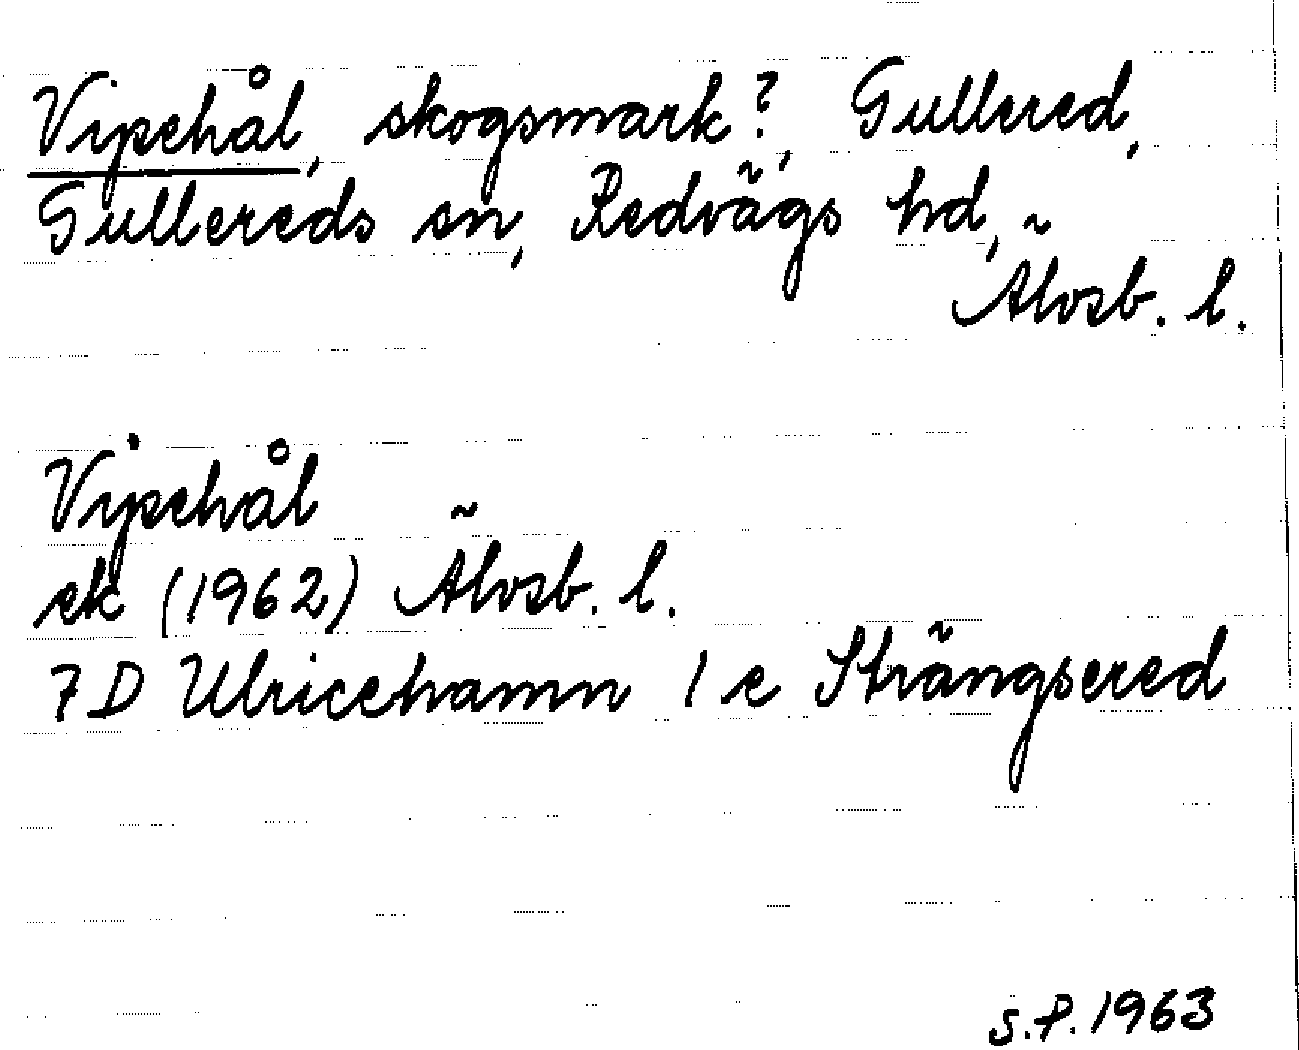 Vipehål, skogsmark?, Gullered,
Gullereds sn, Redvägs hd,
Älvsb. l.
Vipehål
ek (1962) Älvsb. l.
7D Ulricehamn 1 e Strängsered
S.P. 1963